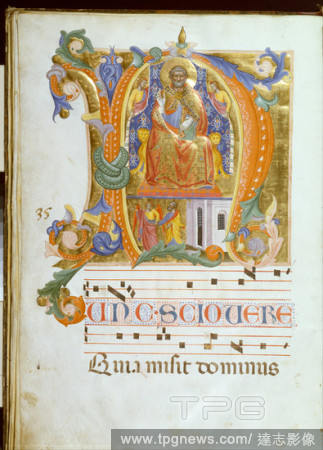 35
NUNC·SCIO VERE
Quia misit dominus
TPG
www.tpgnews.com / 達志影像